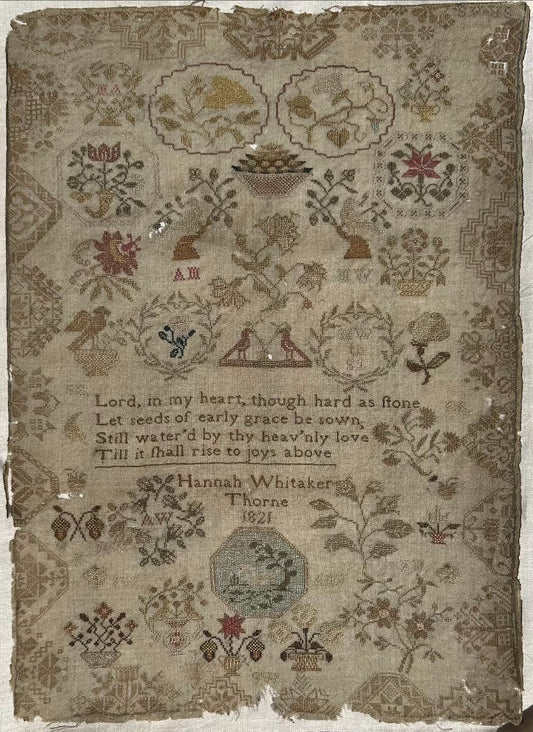 AM
Lord, in my heart, though hard as ſtone
Let seeds of early grace be sown,
Still water'd by thy heav'nly love
Till it ſhall rise to joys above
Hannah Whitaker
Thorne
1821
AW